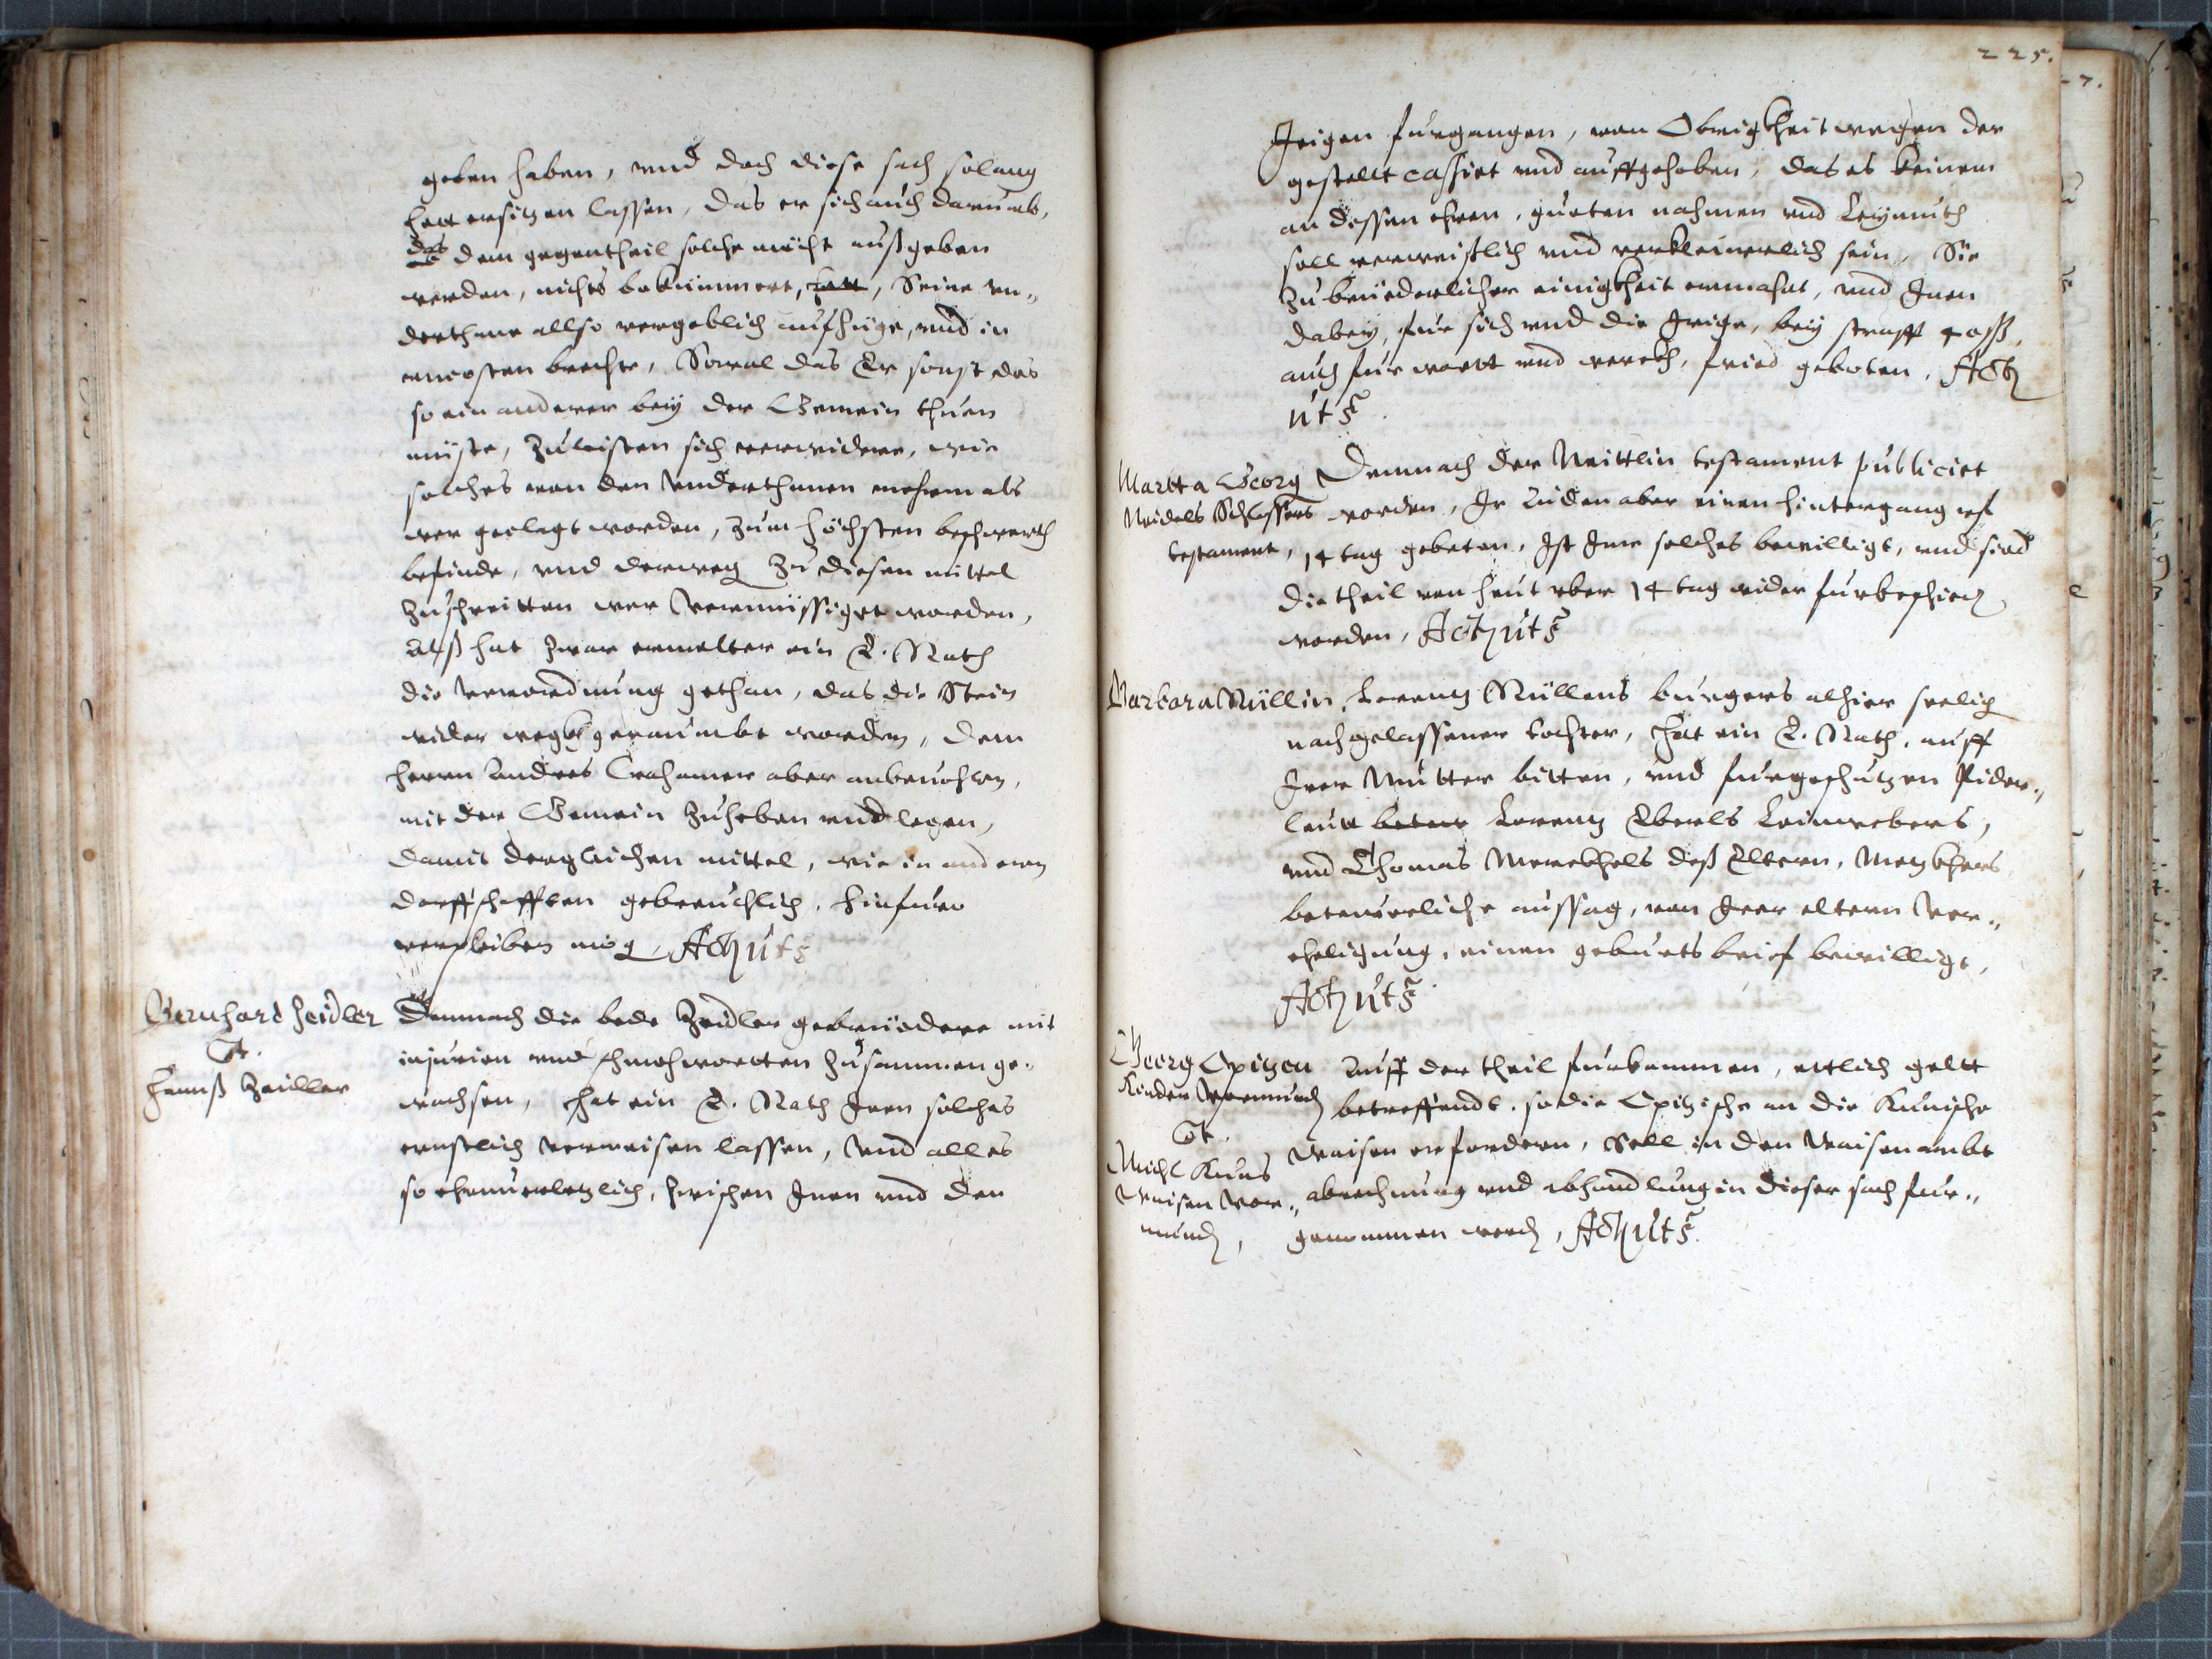 geben haben, vnd doch diese sach solang
hett ersitzen lassen, das er sich auch darumb,
das dem gegentheil solche nicht außgeben
werden, nichts bekümmert, hett, Seine vn„
derthane allso vergeblich aufhüge, vnd in
vncosten brechte, Sowol das Er sonst das
so ein anderer bey der Gemein thuen
müste, zuleisten sich verwidere, wie
solches von den Vnderthanen mehrmals
wer geclagt worden, zum höchsten beschwerth
befinde, vnd derweg zu diesen mittel
zuschreitten wer verursachet worden,
Alß hat zwar ermelter ein E. Rath
die verordnung gethan, das die Stein
wider wegkh geraumbt worden, dem
herrn Andres Crahamer aber anbeuohlen,
mit der Gemein zuheben vnd legen,
damit dergleichen mittel, wie in andern
dorffschafften gebreuchlich, hinfuro
verpleiben mög. Act: ut s.
Bernhard Zeidler
Ct.
Hannß Zeidler
Demnach die bede Zeidler gebrüedere mit
injurien vnd schmehwortten zusammen ge„
wachsen, hat ein E. Rath Inen solches
ernstlich verweisen lassen, vnd alles
so ehrnuerletzlich, zwischen Inen vnd den
225.
Irigen furgangen, von Obrigkheit wegen der
gestellt cassirt vnd auffgehoben, das es keinem
an dessen ehren, gueten nahmen vnd Leymuth
soll verweißlich vnd verkleinerlich sein, Sie
zu brüederlicher einigkheit ermahnt, vnd Inen
dabey, fur sich vnd die Irige, bey straff 4 ß,
auch fur wortt vnd werckh, fried geboten. Act:
ut s.
Martta Georg
Neidels Schlossers
testament,
Demnach der Neittlin testament publicirt
worden, Ir Aiden aber einen hintergang vf
14 tag gebeten, Ist Ime solches bewilligt, vnd sind
die theil von heut vber 14 tag wider furbeschied
worden, Act: ut s.
Barbara Müllin, Lorentz Müllens burgers alhier seelig
nachgelassener tochter, hat ein E. Rath, auff
Irer Mutter bitten, vnd furgeschutzen Pider„
leutt beteur Lorentz Eberls Leinwebers,
vnd Thomas Merckhels deß Eltern, Metzkhers
beteurliche aussag, von Irer eltern ver„
eheligung, einen geburts brief bewilligt,
Act: ut s.
Georg Opitzen
Kinder Vormund
Ct.
Michl Kuns
Waisen Vor„
mund,
Auff der theil furkommen, ettlich gelt
betreffendt, so die Opitzische an die Kunische
Waisen erfordern, Soll in den Waisen ambt
abrechnung vnd abhandlung in dieser sach fur„
genommen werd, Act: ut s.